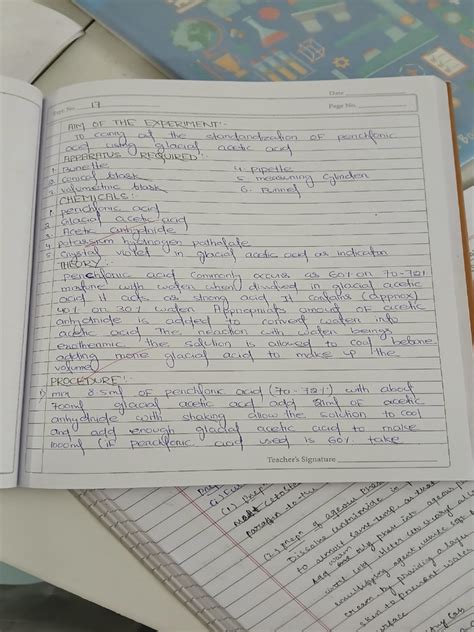 Date
Page No. 17
Page No.
AIM OF THE EXPERIMENT:-
To carry out the standardization of perchloric
acid using glacial acetic acid
APPARATUS REQUIRED:-
1. Burette 4. pipette
2. conical flask 5. measuring cylinder
3. volumetric flask 6. Funnel
CHEMICALS:-
1. perchloric acid
2. Glacial acetic acid
3. Acetic anhydride
4. potassium hydrogen pathalate
5. Crystal violet in glacial acetic acid as indicator
THEORY:-
perchloric acid commonly occurs as 60% or 70-72%
mixture with water when divided in glacial acetic
acid it acts as strong acid It contains (approx)
40% or 30% water Appropriate amount of acetic
anhydride is added to convert water into
acetic acid The reaction with water beings
exothermic the solution is allowed to cool before
adding more glacial acid to make up the
volume
PROCEDURE:-
1) mix 8.5ml of perchloric acid (70-72%) with about
700ml glacial acetic acid add ml of acetic
anhydride with shaking allow the solution to cool
and add enough glacial acetic acid to make
1000ml (if perchloric acid used is 60% take
Teacher's Signature
of aqueous
Dissolve in
to almost same temp. as that
and oily phase into aqueous
until
emulsifying agent
cream by providing a layer
skin to prevent water
surface